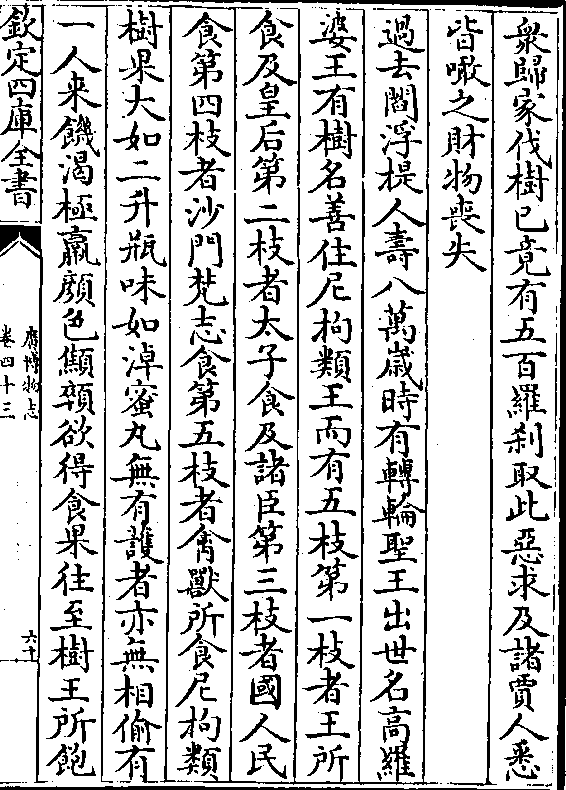 衆歸家伐樹已竟有五百羅刹取此惡求及諸賈人悉
皆噉之財物喪失
過去閻浮提人壽八萬歳時有轉輪聖王出世名高羅
婆王有樹名善住尼拘類王而有五枝第一枝者王所
食及皇后第二枝者太子食及諸臣第三枝者國人民
食第四枝者沙門梵志食第五枝者禽獸所食尼拘類
樹果大如二升瓶味如淖蜜丸無有護者亦無相偷有
一人来饑渴極羸顔色顦顇欲得食果往至樹王所飽
欽定四庫全書
廣博物志
卷四十三
六十